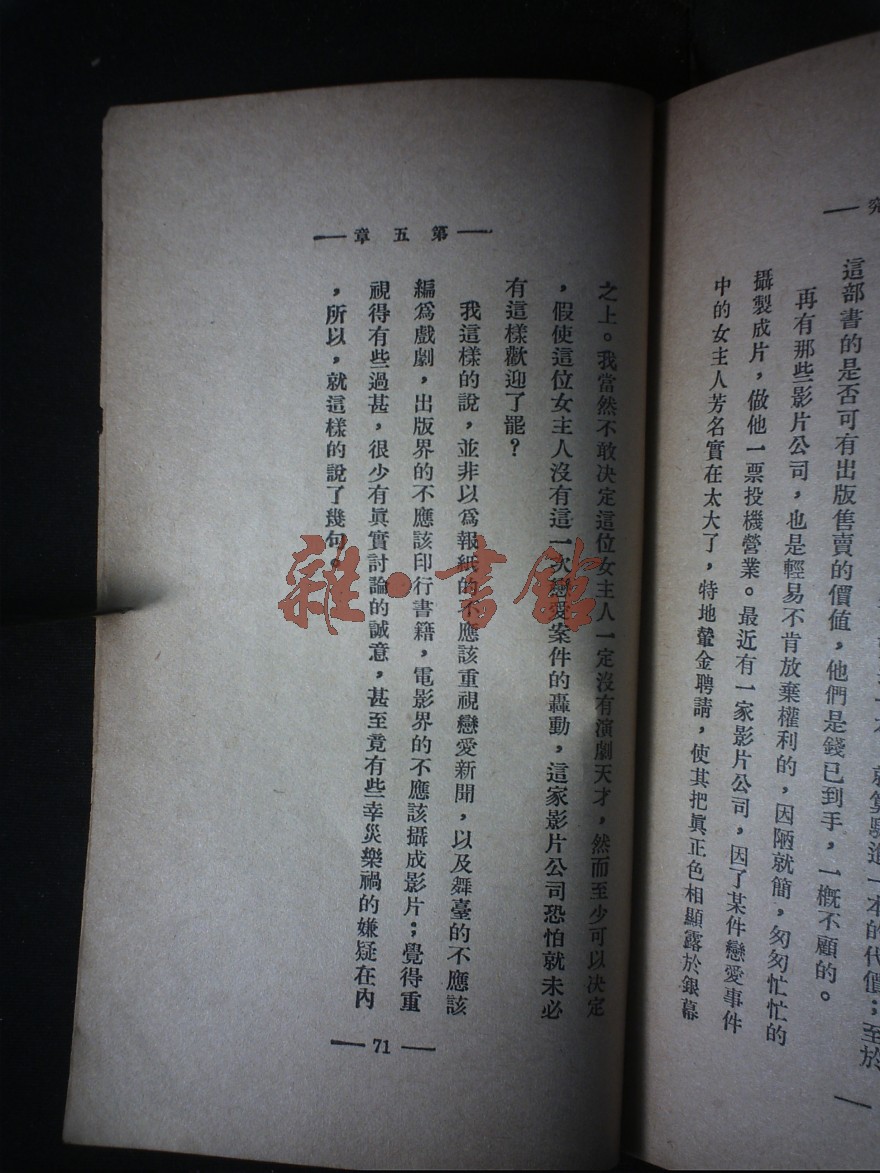 就算騙進一本的代價；至於
這部書的是否可有出版售賣的價值，他們是錢已到手，一概不顧的。
再有那些影片公司，也是輕易不肯放棄權利的，因陋就簡，匆匆忙忙的
攝製成片，做他一票投機營業。最近有一家影片公司，因了某件戀愛事件
中的女主人芳名實在太大了，特地輦金聘請，使其把眞正色相顯露於銀幕
第五章
之上。我當然不敢決定這位女主人一定沒有演劇天才，然而至少可以決定
，假使這位女主人沒有這一次戀愛案件的轟動，這家影片公司恐怕就未必
有這樣歡迎了罷？
我這樣的說，並非以爲報紙的不應該重視戀愛新聞，以及舞臺的不應該
編爲戲劇，出版界的不應該印行書籍，電影界的不應該攝成影片；覺得重
視得有些過甚，很少有眞實討論的誠意，甚至竟有些幸災樂禍的嫌疑在內
，所以，就這樣的說了幾句。
71
雜·書館